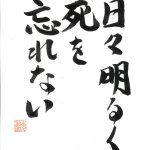 日々明るく
死を
忘れない